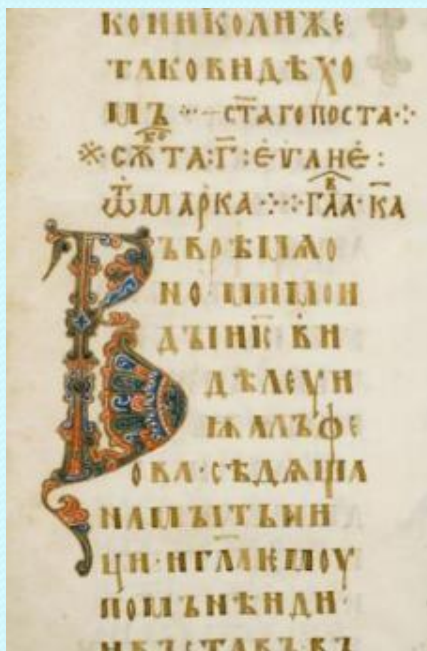 КОНИКОЛИЖЕ
ТАКОВИДѢХО
МЪ ⁘ — СТ҃АГОПОСТА⁘
※ СѪ҃ТА·Г҃·ЕѴ҃АНЕ:
Ѿ МАРКА⁘⁘ГЛ҃А·К҃А
ВЪВРѢМѦО
НОМИМОИ
ДЫИІС҃ВИ
ДѢЛЕУИ
ИѨАЛЪФЕ
ОВА·СѢДѦЩА
НАМЪІТЬНИ
ЦИ·ИГЛ҃АЕМОУ
ПОМЬНѢИДИ·
ИВЪСТАВЪВЪ